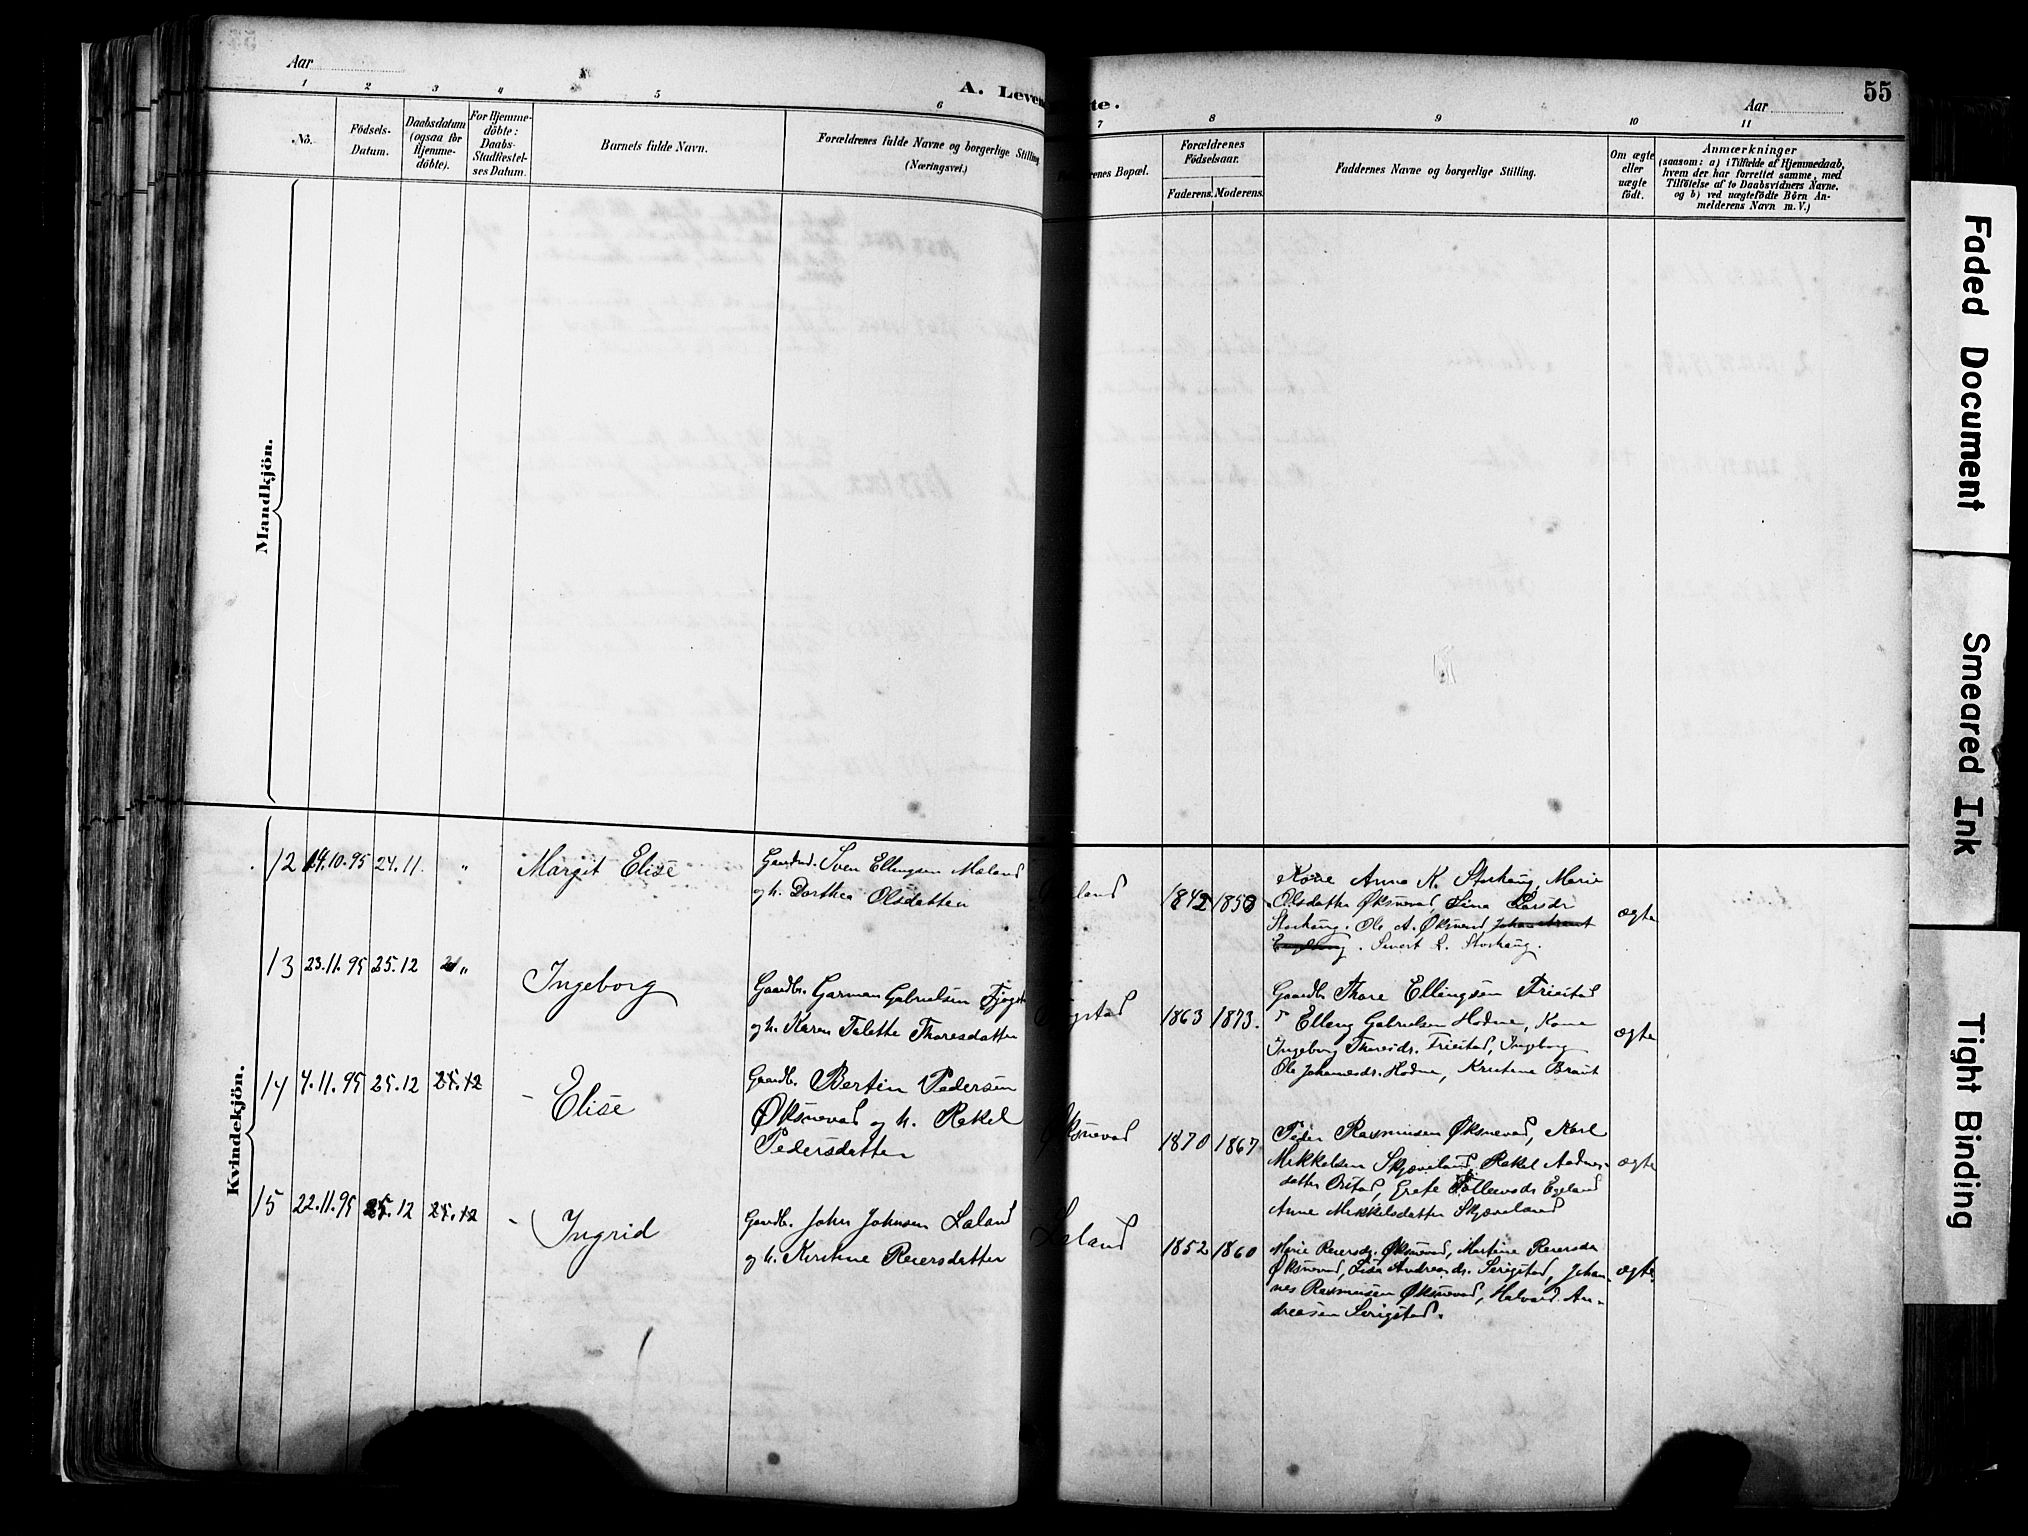 Aar
A. Leven
te.
Aar
55
1
2
3
4
5
6
7
8
9
10
11
No.
Födsels-
Datum.
Daabsdatum
(ogsaa for
Hjemme-
döbte).
For Hjemme-
döbte:
Daabs-
Stadfæstel-
ses Datum.
Barnets fulde Navn.
Forældrenes fulde Navne og borgerlige Stilling
(Næringsvei.)
renes Bopæl.
Forældrenes
Födselsaar.
Faderens.
Moderens.
Faddernes Navne og borgerlige Stilling.
Om ægte
eller
uægte
født.
Anmærkninger
(saasom: a) i Tilfælde af Hjemmedaab,
hvem der har forrettet samme, med
Tilföielse af to Daabsvidners Navne.
og b) ved uægtefødte Börn An-
melderens Navn m. V.)
Mandkjön.
Kvindekjön.
12 19.10.95 24.11. " Margit Elise
Gaardbr. Sven Ellingsen Maland
og h. Dorthea Olsdatter
land
1842 1858
Kone Anna K. Storhaug, Marie
Olsdatter Øksnevad, Sina Larsdr
Storhaug, Ole A. Øksnevad, Johan
Sivert L. Storhaug.
ægte
13 23.11.95 25.12 " Ingeborg
Gaardbr. Garman Gabrielsen
og h. Karen Talette Thoresdatter
gstad
1863 1873.
Gaardbr Thore Ellingsen Friestad
Elling Gabrielsen Hodne, Kone
Ingeborg Thoresdr. Friestad, Ingeborg
Ole Johannesdr. Hodne, Kristine Braut
ægte
14 4.11.95 25.12 25.12 Elise
Gaardbr. Bertin Pedersen
Øksnevad og h. Rakel
Pedersdatter
Øksnevad
1870 1867
Peder Rasmusen Øksnevad, Karl
Mikkelsen Skjæveland, Rakel Aadnes-
datter Orstad, Grete Tollevsdr Egeland
Anne Mikkelsdatter Skjæveland
ægte
15 22.11.95 25.12 25.12 Ingrid
Gaardbr. John Johnsen Laland
og h. Kirstine Reiersdatter
Laland
1852 1860
Marie Reiersdr. Øksnevad, Martine Reiersdr
Øksnevad, Lisa Andreasdr. Serigstad, Johan-
nes Rasmusen Øksnevad, Halvard An-
dreasen Serigstad.
ægte
Faded Document
Smeared Ink
Tight Binding